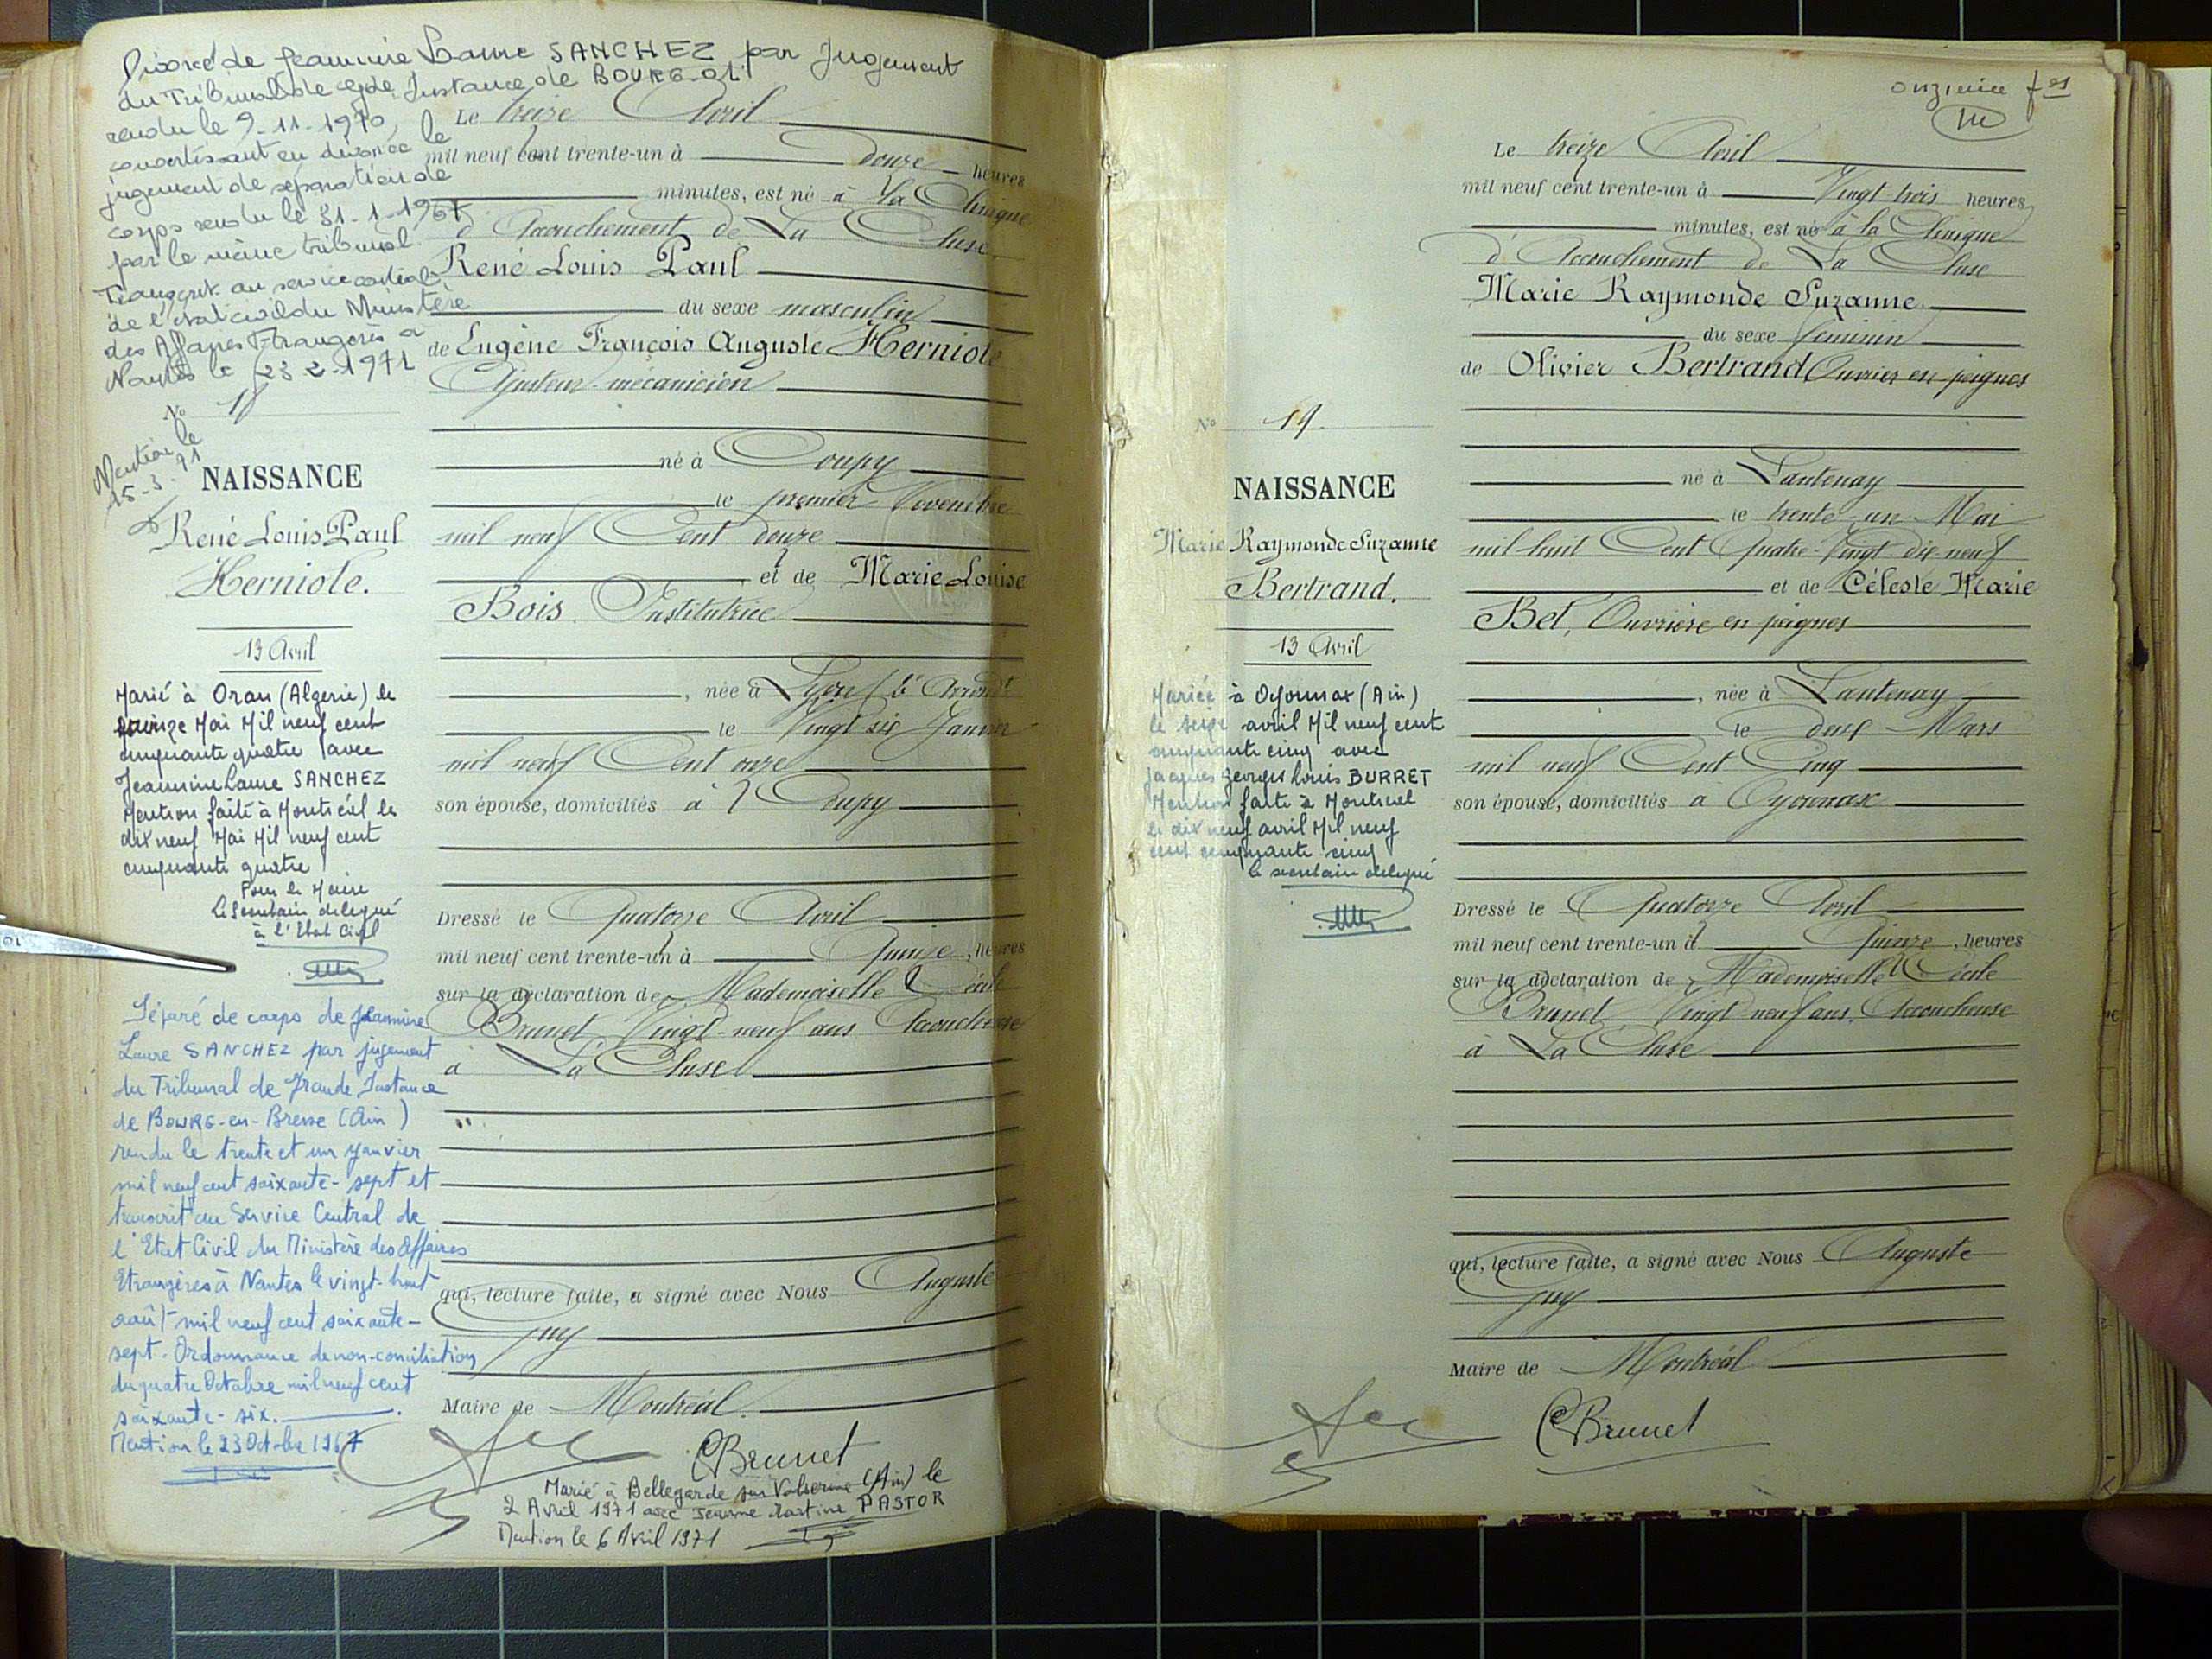 Divorcé de Jeannine Laure SANCHEZ par Jugement
du Tribunal de Gde Instance de BOURG-01
rendu le 9-11-1970,
convertissant en divorce le
jugement de séparation de
corps rendu le 31-1-1967
par le même tribunal.
Transcrit au service central
de l'état civil du Ministère
des Affaires Etrangères à
Nantes le 23 2-1971
N° 18
Mention le
15-3-71
NAISSANCE
René Louis Paul
Herniote.
13 Avril
Marié à Oran (Algérie) le
quinze Mai Mil neuf cent
cinquante quatre avec
Jeannine Laure SANCHEZ
Mention faite à Montréal le
dix neuf Mai Mil neuf cent
cinquante quatre
Pour le Maire
Le Secrétaire délégué
à l'Etat Civil
Séparé de corps de Jeannine
Laure SANCHEZ par jugement
du Tribunal de Grande Instance
de BOURG-en-Bresse (Ain)
rendu le trente et un janvier
mil neuf cent soixante-sept et
transcrit au Service Central de
l'Etat Civil du Ministère des Affaires
Etrangères à Nantes le vingt-huit
août mil neuf cent soixante-
sept. Ordonnance de non-conciliation
du quatre Octobre mil neuf cent
soixante-six.
Mention le 23 Octobre 1967
Le treize Avril
mil neuf cent trente-un à douze heures
minutes, est né à la Clinique
d'Accouchement de La Cluse.
René Louis Paul
du sexe masculin
de Eugène François Auguste Herniote
Ajusteur-mécanicien
né à Coupy
le premier Novembre
mil neuf Cent douze
et de Marie Louise
Bois Institutrice
, née à Lyon (6e Arrondt
le Vingt six Janvier
mil neuf Cent onze
son épouse, domiciliés à Coupy
Dressé le Quatorze Avril
mil neuf cent trente-un à Quinze, heures
sur la déclaration de Mademoiselle Cécile
Brunet Vingt-neuf ans Accoucheuse
à La Cluse
qui, lecture faite, a signé avec Nous Auguste
Guy
Maire de Montréal.
CBrunet
Marié à Bellegarde sur Valserine (Ain) le
2 Avril 1971 avec Jeanne Martine PASTOR
Mention le 6 Avril 1971
onzième f et
N° 19.
NAISSANCE
Marie Raymonde Suzanne
Bertrand.
13 Avril
Mariée à Oyonnax (Ain)
le seize avril Mil neuf cent
cinquante cinq avec
Jacques Georges Louis BURRET
Mention faite à Montréal
le dix neuf avril Mil neuf
cent cinquante cinq
le secrétaire délégué
Le treize Avril
mil neuf cent trente-un à Vingt trois heures,
minutes, est né à la Clinique
d'Accouchement de La Cluse
Marie Raymonde Suzanne
du sexe féminin
de Olivier Bertrand Ouvrier en peignes
né à Lantenay
le trente-un Mai
mil huit Cent Quatre-Vingt dix-neuf
et de Céleste Marie
Bel, Ouvrière en peignes
, née à Lantenay
le deux Mars
mil neuf Cent Cinq
son épouse, domiciliés à Oyonnax
Dressé le Quatorze Avril
mil neuf cent trente-un à Quinze, heures
sur la déclaration de Mademoiselle Cécile
Brunet Vingt neuf ans, Accoucheuse
à La Cluse
qui, lecture faite, a signé avec Nous Auguste
Guy
Maire de Montréal
CBrunet